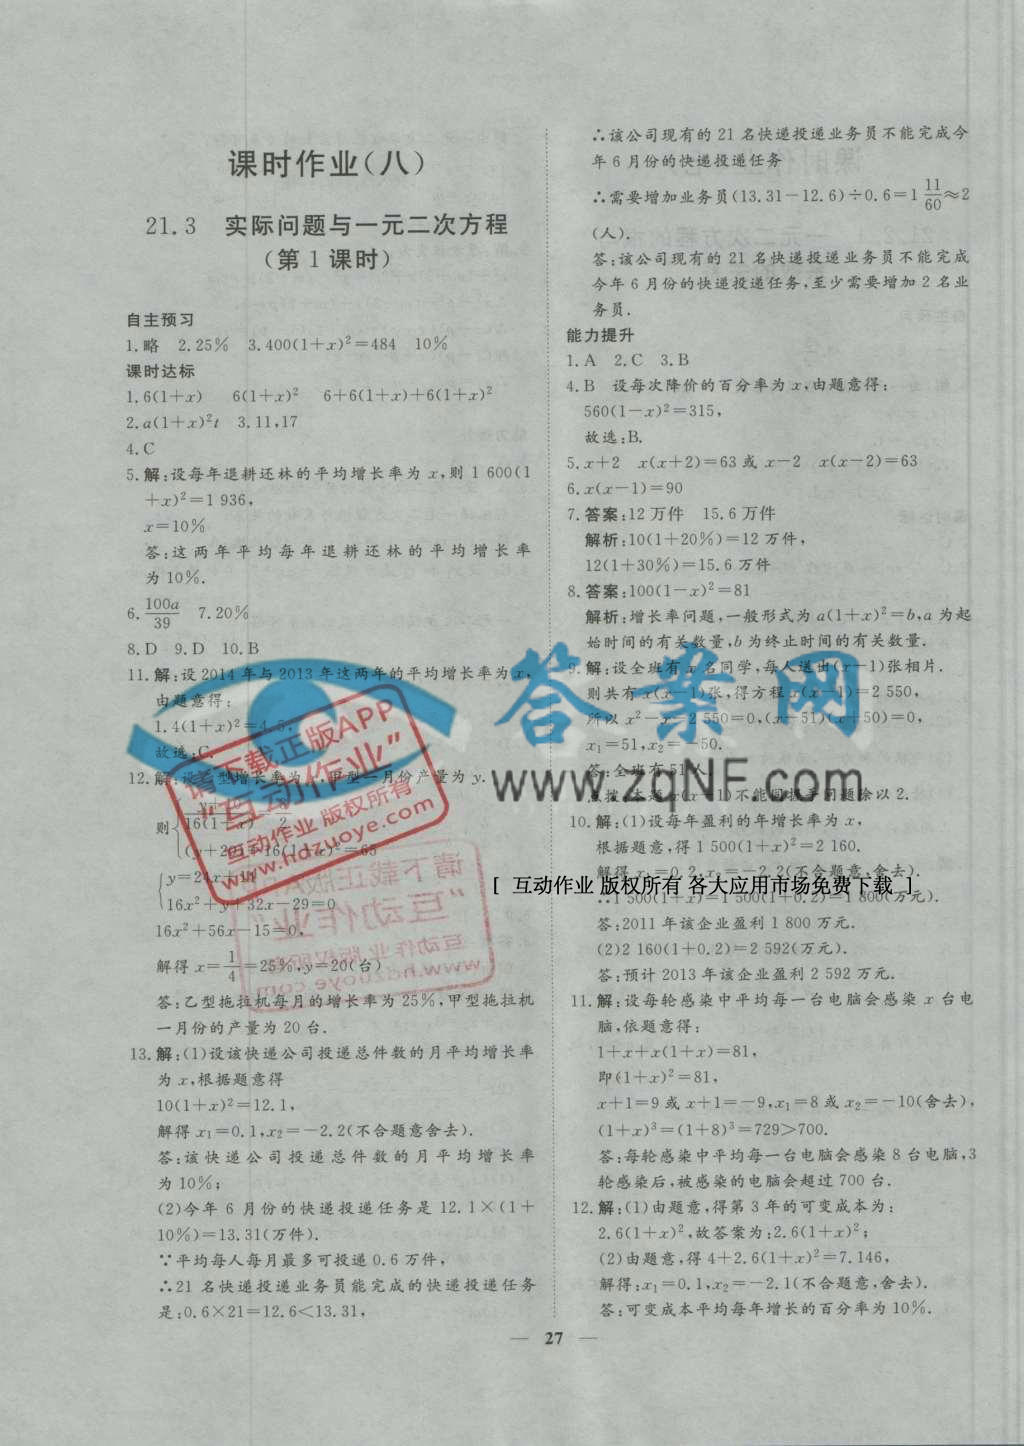 课时作业(八)
21.3 实际问题与一元二次方程
(第1课时)
自主预习
1.略 2.25% 3.400(1+x)²=484 10%
课时达标
1.6(1+x) 6(1+x)² 6+6(1+x)+6(1+x)²
2.a(1+x)²t 3.11,17
4.C
5.解:设每年退耕还林的平均增长率为x,则1 600(1
+x)²=1 936,
x=10%
答:这两年平均每年退耕还林的平均增长率
为10%.
6.100a/39 7.20%
8.D 9.D 10.B
11.解:设2014年与2013年这两年的平均增长率为x,
由题意得:
1.4(1+x)²=4.5,
故选:C.
12.解:设乙型增长率为x,甲型一月份产量为y.
则
16(1+x)
y=24x+14
16x²+y+32x-29=0
16x²+56x-15=0,
解得x=1/4=25%,y=20(台)
答:乙型拖拉机每月的增长率为25%,甲型拖拉机
一月份的产量为20台.
13.解:(1)设该快递公司投递总件数的月平均增长率
为x,根据题意得
10(1+x)²=12.1,
解得x₁=0.1,x₂=-2.2(不合题意舍去).
答:该快递公司投递总件数的月平均增长率
为10%;
(2)今年6月份的快递投递任务是12.1×(1+
10%)=13.31(万件).
∵平均每人每月最多可投递0.6万件,
∴21名快递投递业务员能完成的快递投递任务
是:0.6×21=12.6<13.31,
∴该公司现有的21名快递投递业务员不能完成今
年6月份的快递投递任务
∴需要增加业务员(13.31-12.6)÷0.6=1 11/60≈2
(人).
答:该公司现有的21名快递投递业务员不能完成
今年6月份的快递投递任务,至少需要增加2名业
务员.
能力提升
1.A 2.C 3.B
4.B 设每次降价的百分率为x,由题意得:
560(1-x)²=315,
故选:B.
5.x+2 x(x+2)=63或x-2 x(x-2)=63
6.x(x-1)=90
7.答案:12万件 15.6万件
解析:10(1+20%)=12万件,
12(1+30%)=15.6万件
8.答案:100(1-x)²=81
解析:增长率问题,一般形式为a(1+x)²=b,a为起
始时间的有关数量,b为终止时间的有关数量.
9.解:设全班有x名同学,每人送出(x-1)张相片.
则共有x(x-1)张,得方程x(x-1)=2 550,
所以x²-x-2 550=0,(x-51)(x+50)=0,
x₁=51,x₂=-50.
答:全班有51人
点拨:本题x(x-1)不能同握手问题除以2.
10.解:(1)设每年盈利的年增长率为x,
根据题意,得1 500(1+x)²=2 160.
解得x₁=0.2,x₂=-2.2(不合题意,舍去).
∴1 500(1+x)=1 500(1+0.2)=1 800(万元).
答:2011年该企业盈利1 800万元.
(2)2 160(1+0.2)=2 592(万元).
答:预计2013年该企业盈利2 592万元.
11.解:设每轮感染中平均每一台电脑会感染x台电
脑,依题意得:
1+x+x(1+x)=81,
即(1+x)²=81,
x+1=9或x+1=-9,x₁=8或x₂=-10(舍去),
(1+x)³=(1+8)³=729>700.
答:每轮感染中平均每一台电脑会感染8台电脑,3
轮感染后,被感染的电脑会超过700台.
12.解:(1)由题意,得第3年的可变成本为:
2.6(1+x)²,故答案为:2.6(1+x)²;
(2)由题意,得4+2.6(1+x)²=7.146,
解得:x₁=0.1,x₂=-2.1(不合题意,舍去).
答:可变成本平均每年增长的百分率为10%.
— 27 —
答案网
www.zqNF.com
[ 互动作业 版权所有 各大应用市场免费下载 ]
请下载正版APP
“互动作业”
互动作业 版权所有
www.hdzuoye.com